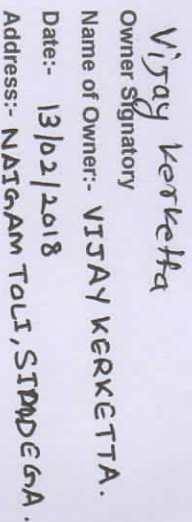 Vijay Kerketta
Owner Signatory
Name of Owner:- VIJAY KERKETTA.
Date:- 13/02/2018
Address:- NAIGAM TOLI, SIMDEGA.